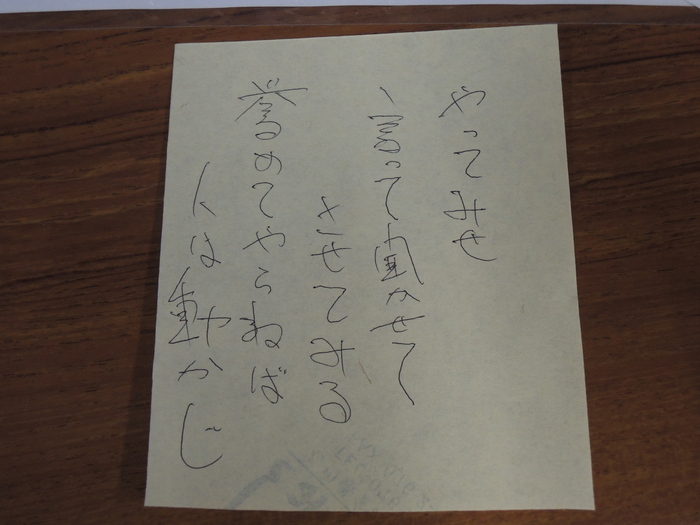 やってみせ
言って聞かせて
させてみる
誉めてやらねば
人は動かじ